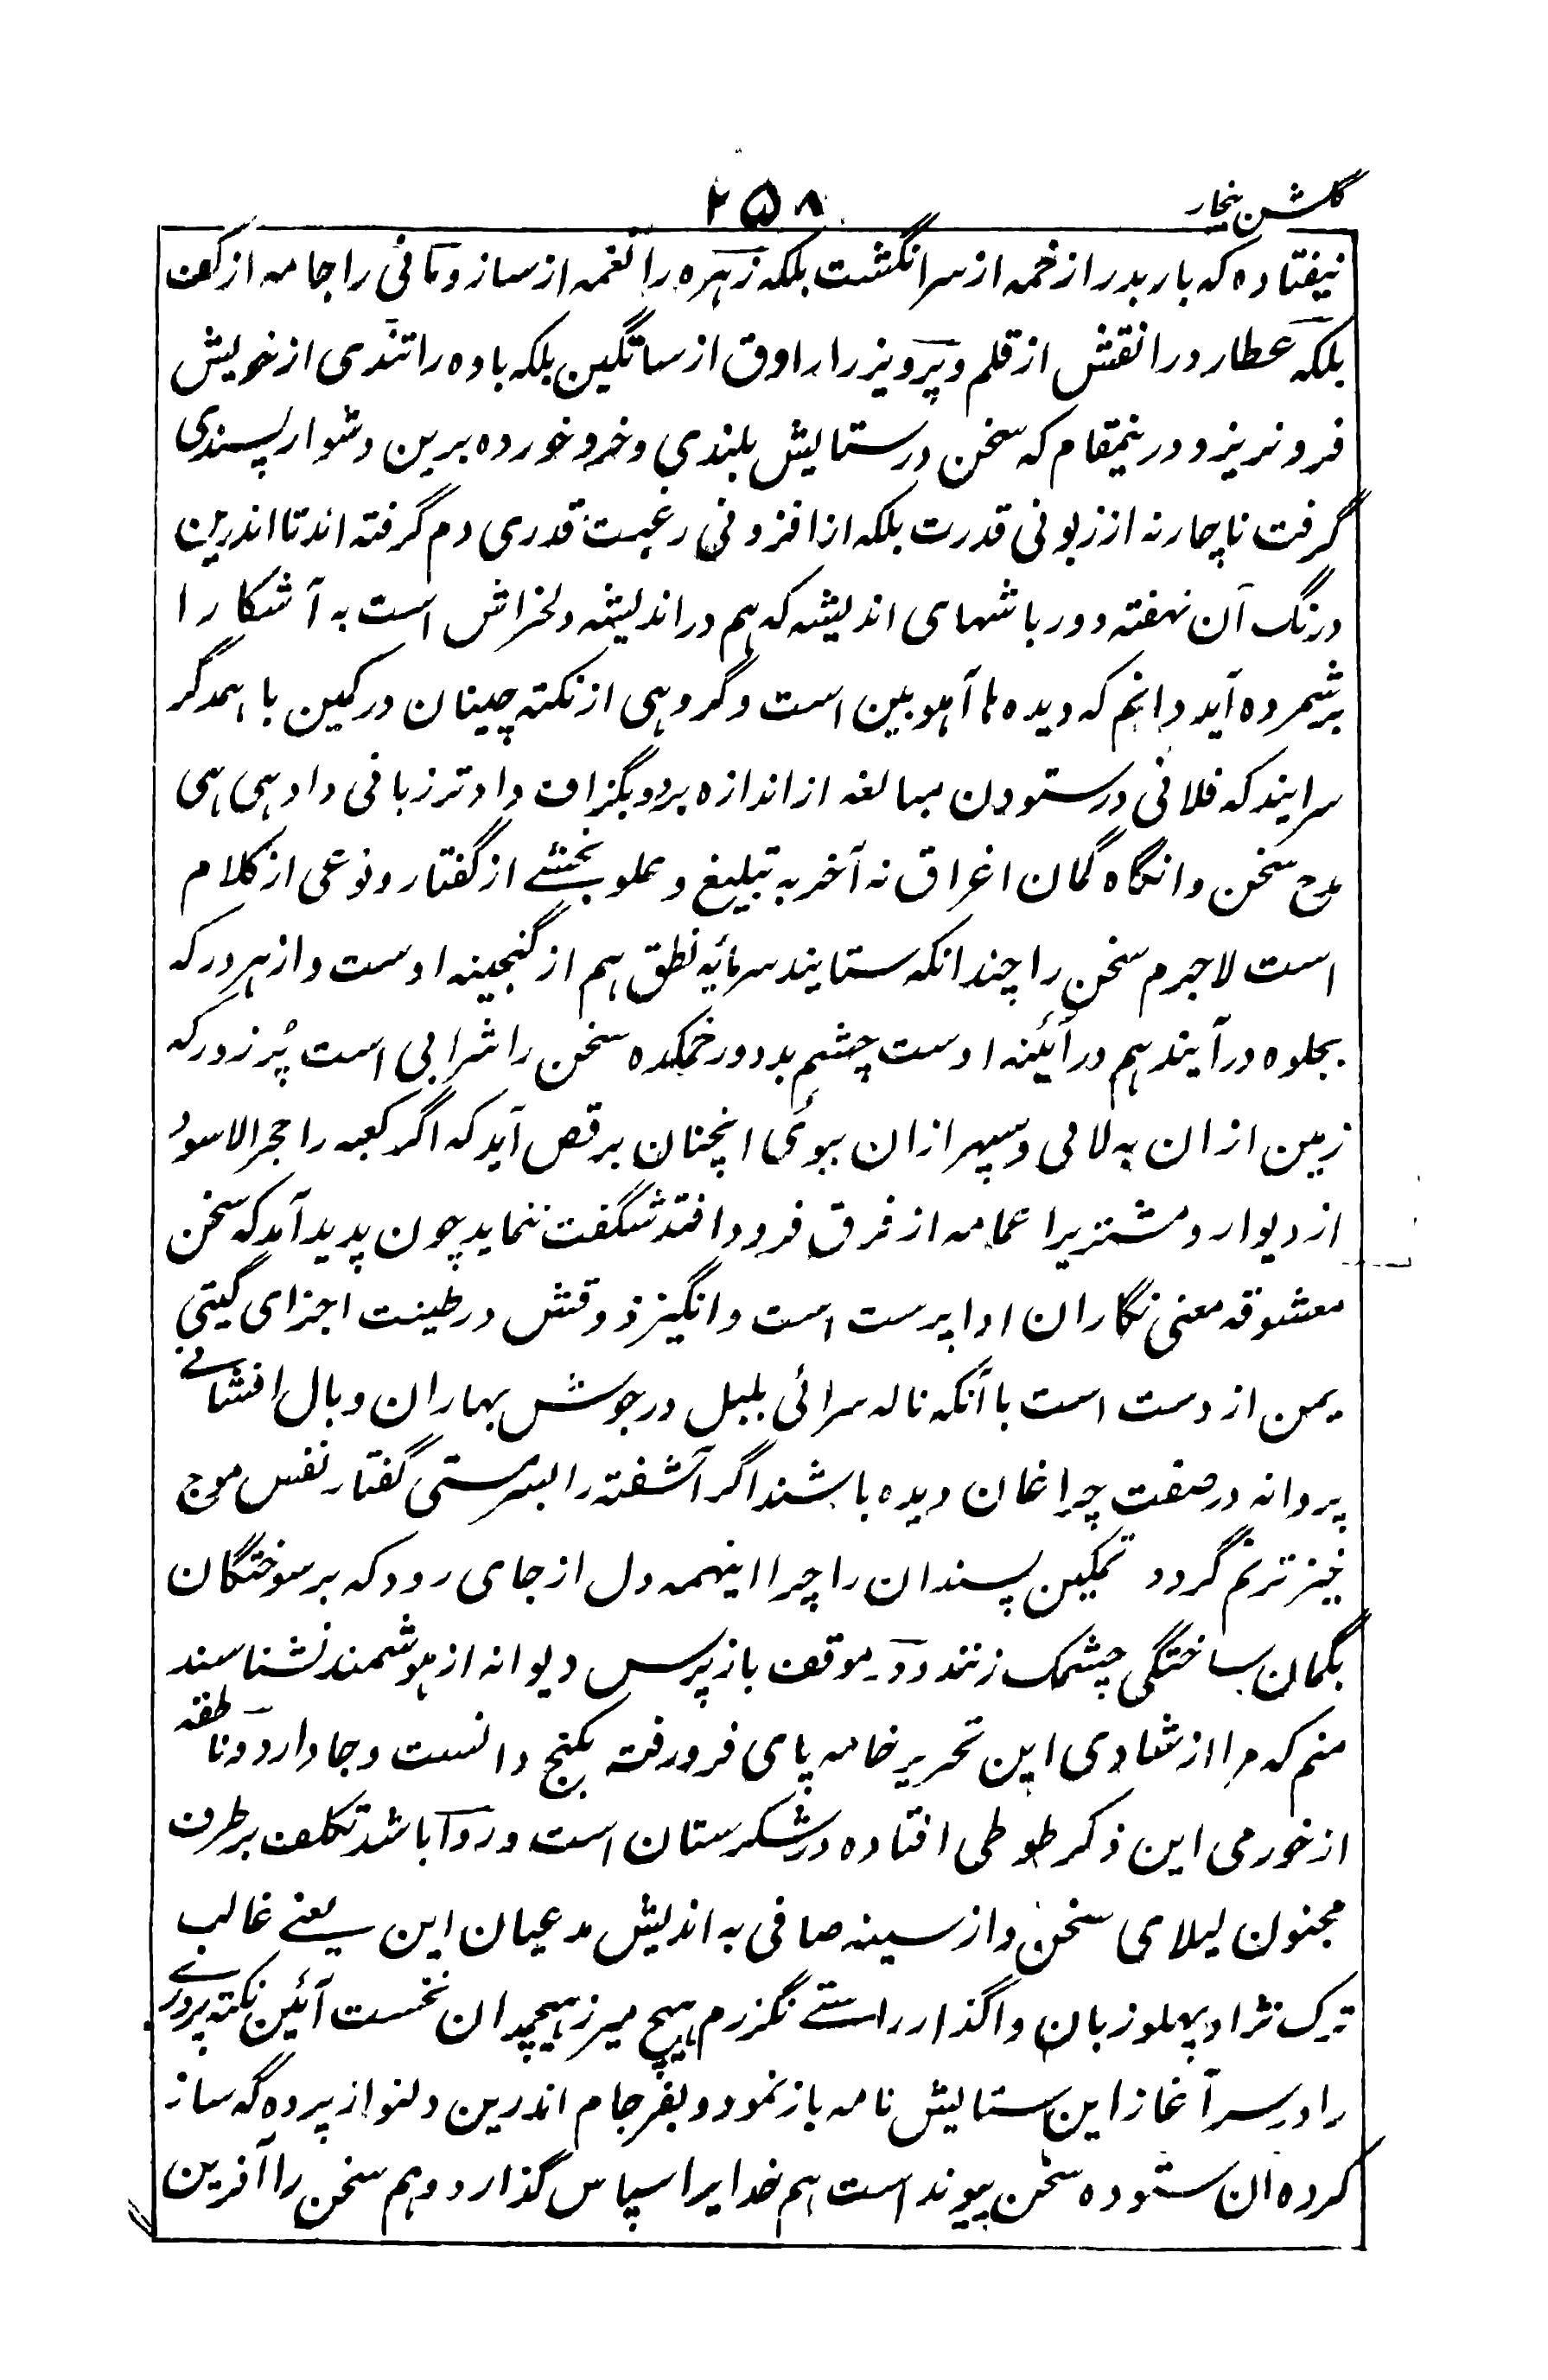 گلشن بیخار
۲۵۸
نیفتاده که باربدرا زخمه از سر انگشت بلکه زهره را نغمه از ساز و مانی را جامه از کف
بلکه عطارد را نقش از قلم و پرویز را راوق از ساتگین بلکه باده را تندی از خویش
فرو نریزد درینمقام که سخن در ستایش بلندی و خرد خورده برین دشوار پسندی
گرفت ناچار نه از زبونی قدرت بلکه از افزونی رغبت قدری دم گرفته اند تا اندرین
درنگ آن نهفته دورباشهای اندیشه که هم در اندیشه دلخراش است به آشکارا
برشمرده آید دانم که دیده ها آهو بین است و گروهی از نکته چینان در کمین با همدگر
سرایند که فلانی در ستودن مبالغه از اندازه برد و بگزاف داد ترزبانی داد هی هی
مدح سخن وانگاه گمان اغراق نه آخر به تبلیغ و علو بخشے از گفتار و نوعی از کلام
است لاجرم سخن را چندانکه ستایند سرمایه نطق هم از گنجینه اوست و از هر در که
بجلوه در آیند هم در آئینه اوست چشم بد دور خمکده سخن را شرابی است پُر زور که
زمین از ان به لائی و سپهر ازان ببوئی آنچنان برقص آید که اگر کعبه را حجر الاسود
از دیوار و مشتریرا عمامه از فرق فرود افتد شگفت ننماید چون پدید آمد که سخن
معشوقه معنی نگاران ادا پرست است و انگیز ذوقش در طینت اجزای گیتی
یمن از دست است با آنکه ناله سرائی بلبل در جوش بهاران و بال افشانے
پروانه در صفت چراغان دیده باشند اگر آشفته را بسرمستی گفتار نفس موج
خیز ترنم گردد تمکین پسندان را چرا اینهمه دل از جای رود که بر سوختگان
بگمان ساختگی چشمک زنند و در موقف باز پرس دیوانه از هوشمند نشناسند
منم که مرا از شادی این تحریر خامه پای فرو رفته بگنج دانست و جا دارد و ناطقه
از خورمی این ذکر طوطی افتاده در شکرستان است و روا باشد تکلف برطرف
مجنون لیلای سخن و از سینه صافی به اندیش مدعیان این یعنے غالب
ترک نژاد پهلو زبان واگذار راستے نگزرم هیچ میرز هیچمدان نخست آئین نکته پرورے
را در سر آغاز این ستایش نامه باز نمود و بفرجام اندرین دلنواز پرده که ساز
کرده ان ستوده سخن پیوند است هم خدایرا سپاس گذارد و هم سخن را آفرین